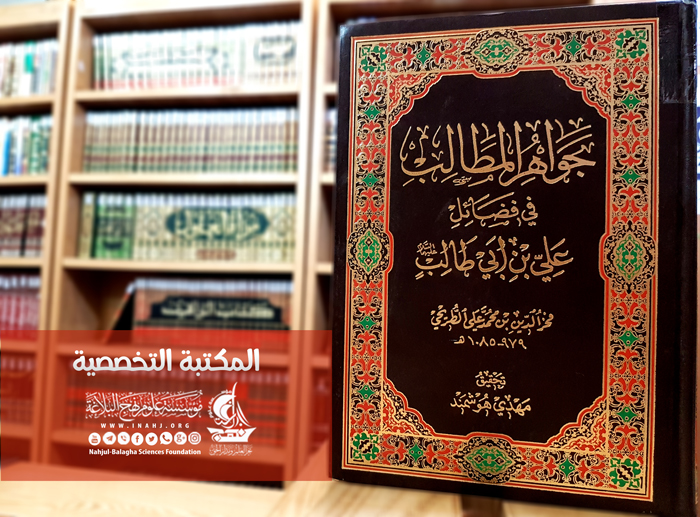 جَوَاهِرُ المَطَالِبِ
فِي فَضَائِلِ
عَلِيِّ بْنِ أَبِي طَالِبٍ
فخر الدين بن محمد علي الطريحي
٩٧٩-١٠٨٥هـ
تحقيق
مهدي هوشمند
المكتبة التخصصية
مؤسسة علوم نهج البلاغة
WWW.INAHJ.ORG
Nahjul-Balagha Sciences Foundation